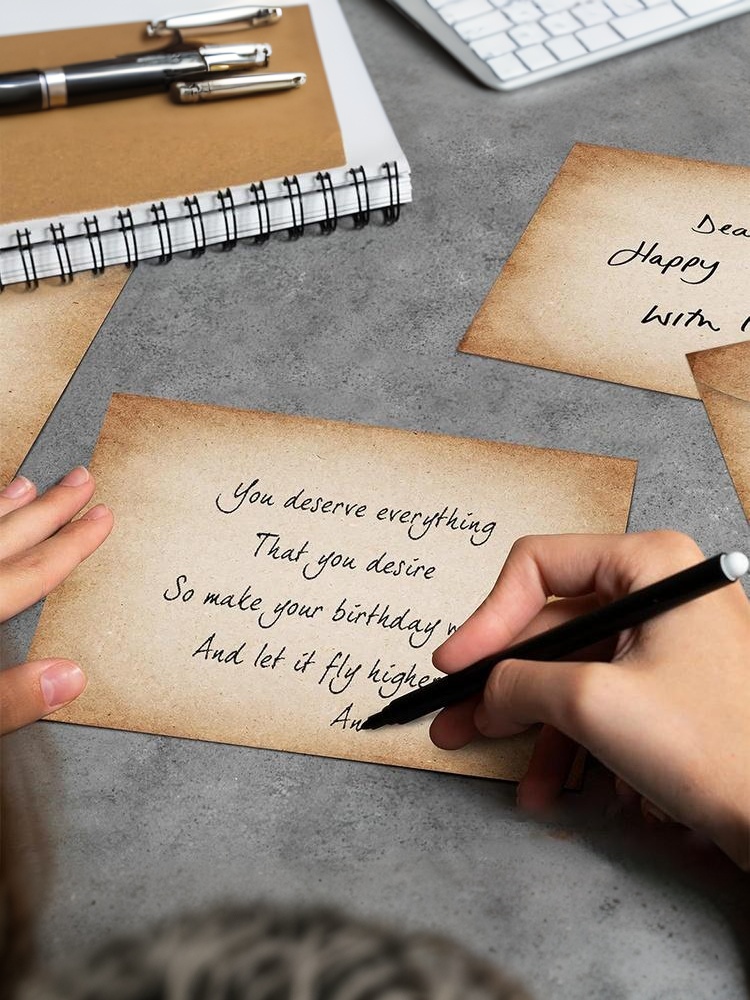 Dea
Happy
With
You deserve everything
That you desire
So make your birthday w
And let it fly higher
An